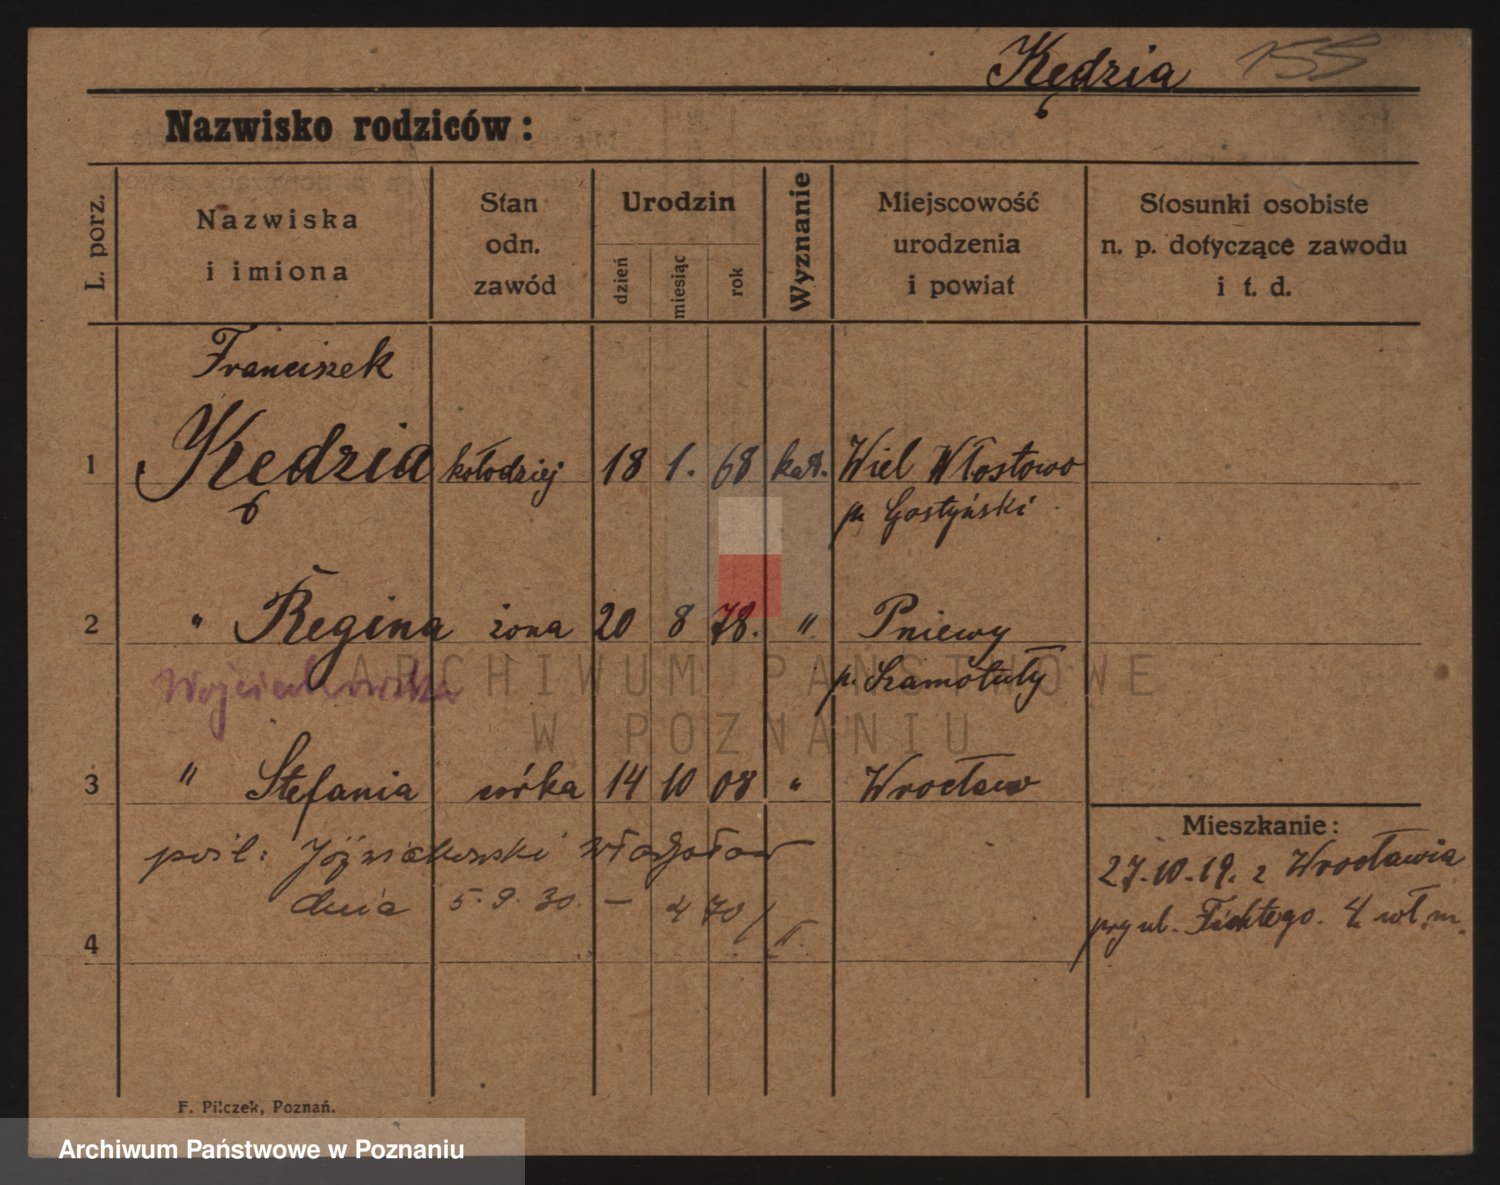 Kędzia 155
Nazwisko rodziców:
L. porz.
Nazwiska
i imiona
Stan
odn.
zawód
Urodzin
dzień
miesiąc
rok
Wyznanie
Miejscowość
urodzenia
i powiat
Stosunki osobiste
n. p. dotyczące zawodu
i t. d.
Franciszek
1 Kędzia kołodziej 18 1. 68 kat. Wiel Włostowo
p. Gostyński
2 " Regina żona 20 8 78. " Pniewy
Wojciechowska p. Szamotuły
ARCHIWUM PAŃSTWOWE
W POZNANIU
3 " Stefania córka 14 10 08 " Wrocław
Mieszkanie:
pośl: Józwiakowski
27.10.19. z Wrocławia
dnia 5.9.30. — 470/
przy ul. Fichtego. 4 wł. m.
4
F. Pilczek, Poznań.
Archiwum Państwowe w Poznaniu